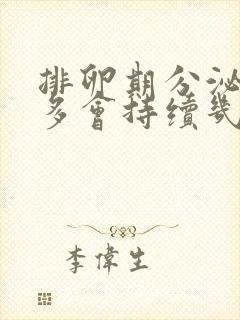 排卵期分泌
多會持續幾
李偉生